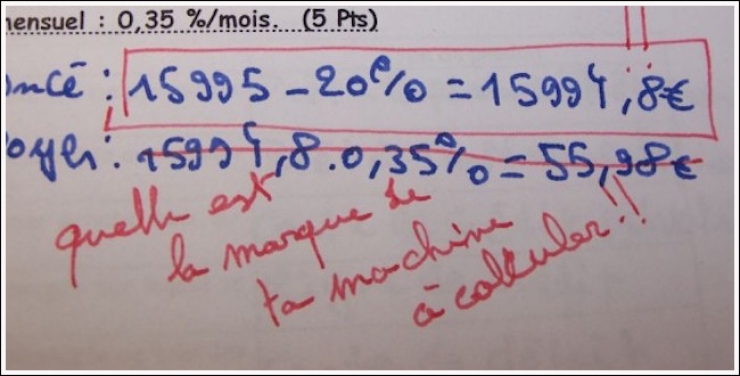 mensuel : 0,35 %/mois. (5 Pts)
oncé : 15995 - 20% = 15994,8€
oyer : 15994,8 . 0,35% = 55,98€
quelle est
la marque de
ta machine
à calculer !!